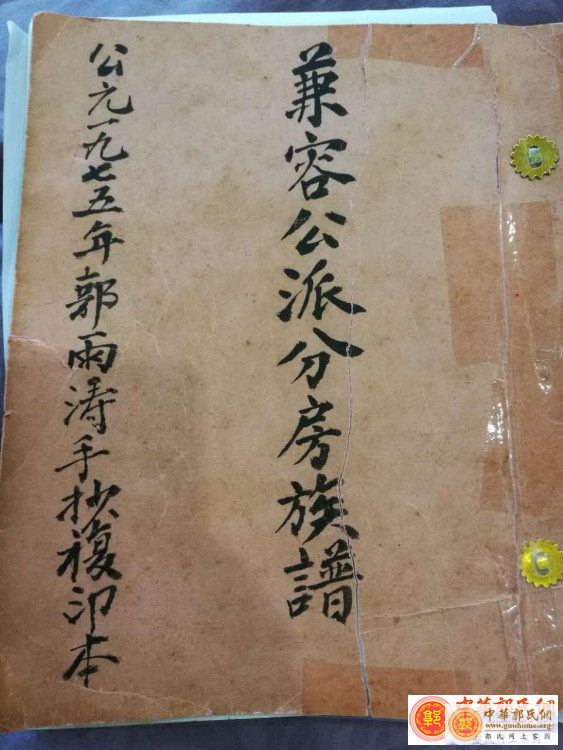 兼容公派分房族譜
公元一九七五年郭雨涛手抄複印本
中華郭氏網
www.guohome.org
郭氏网上家园